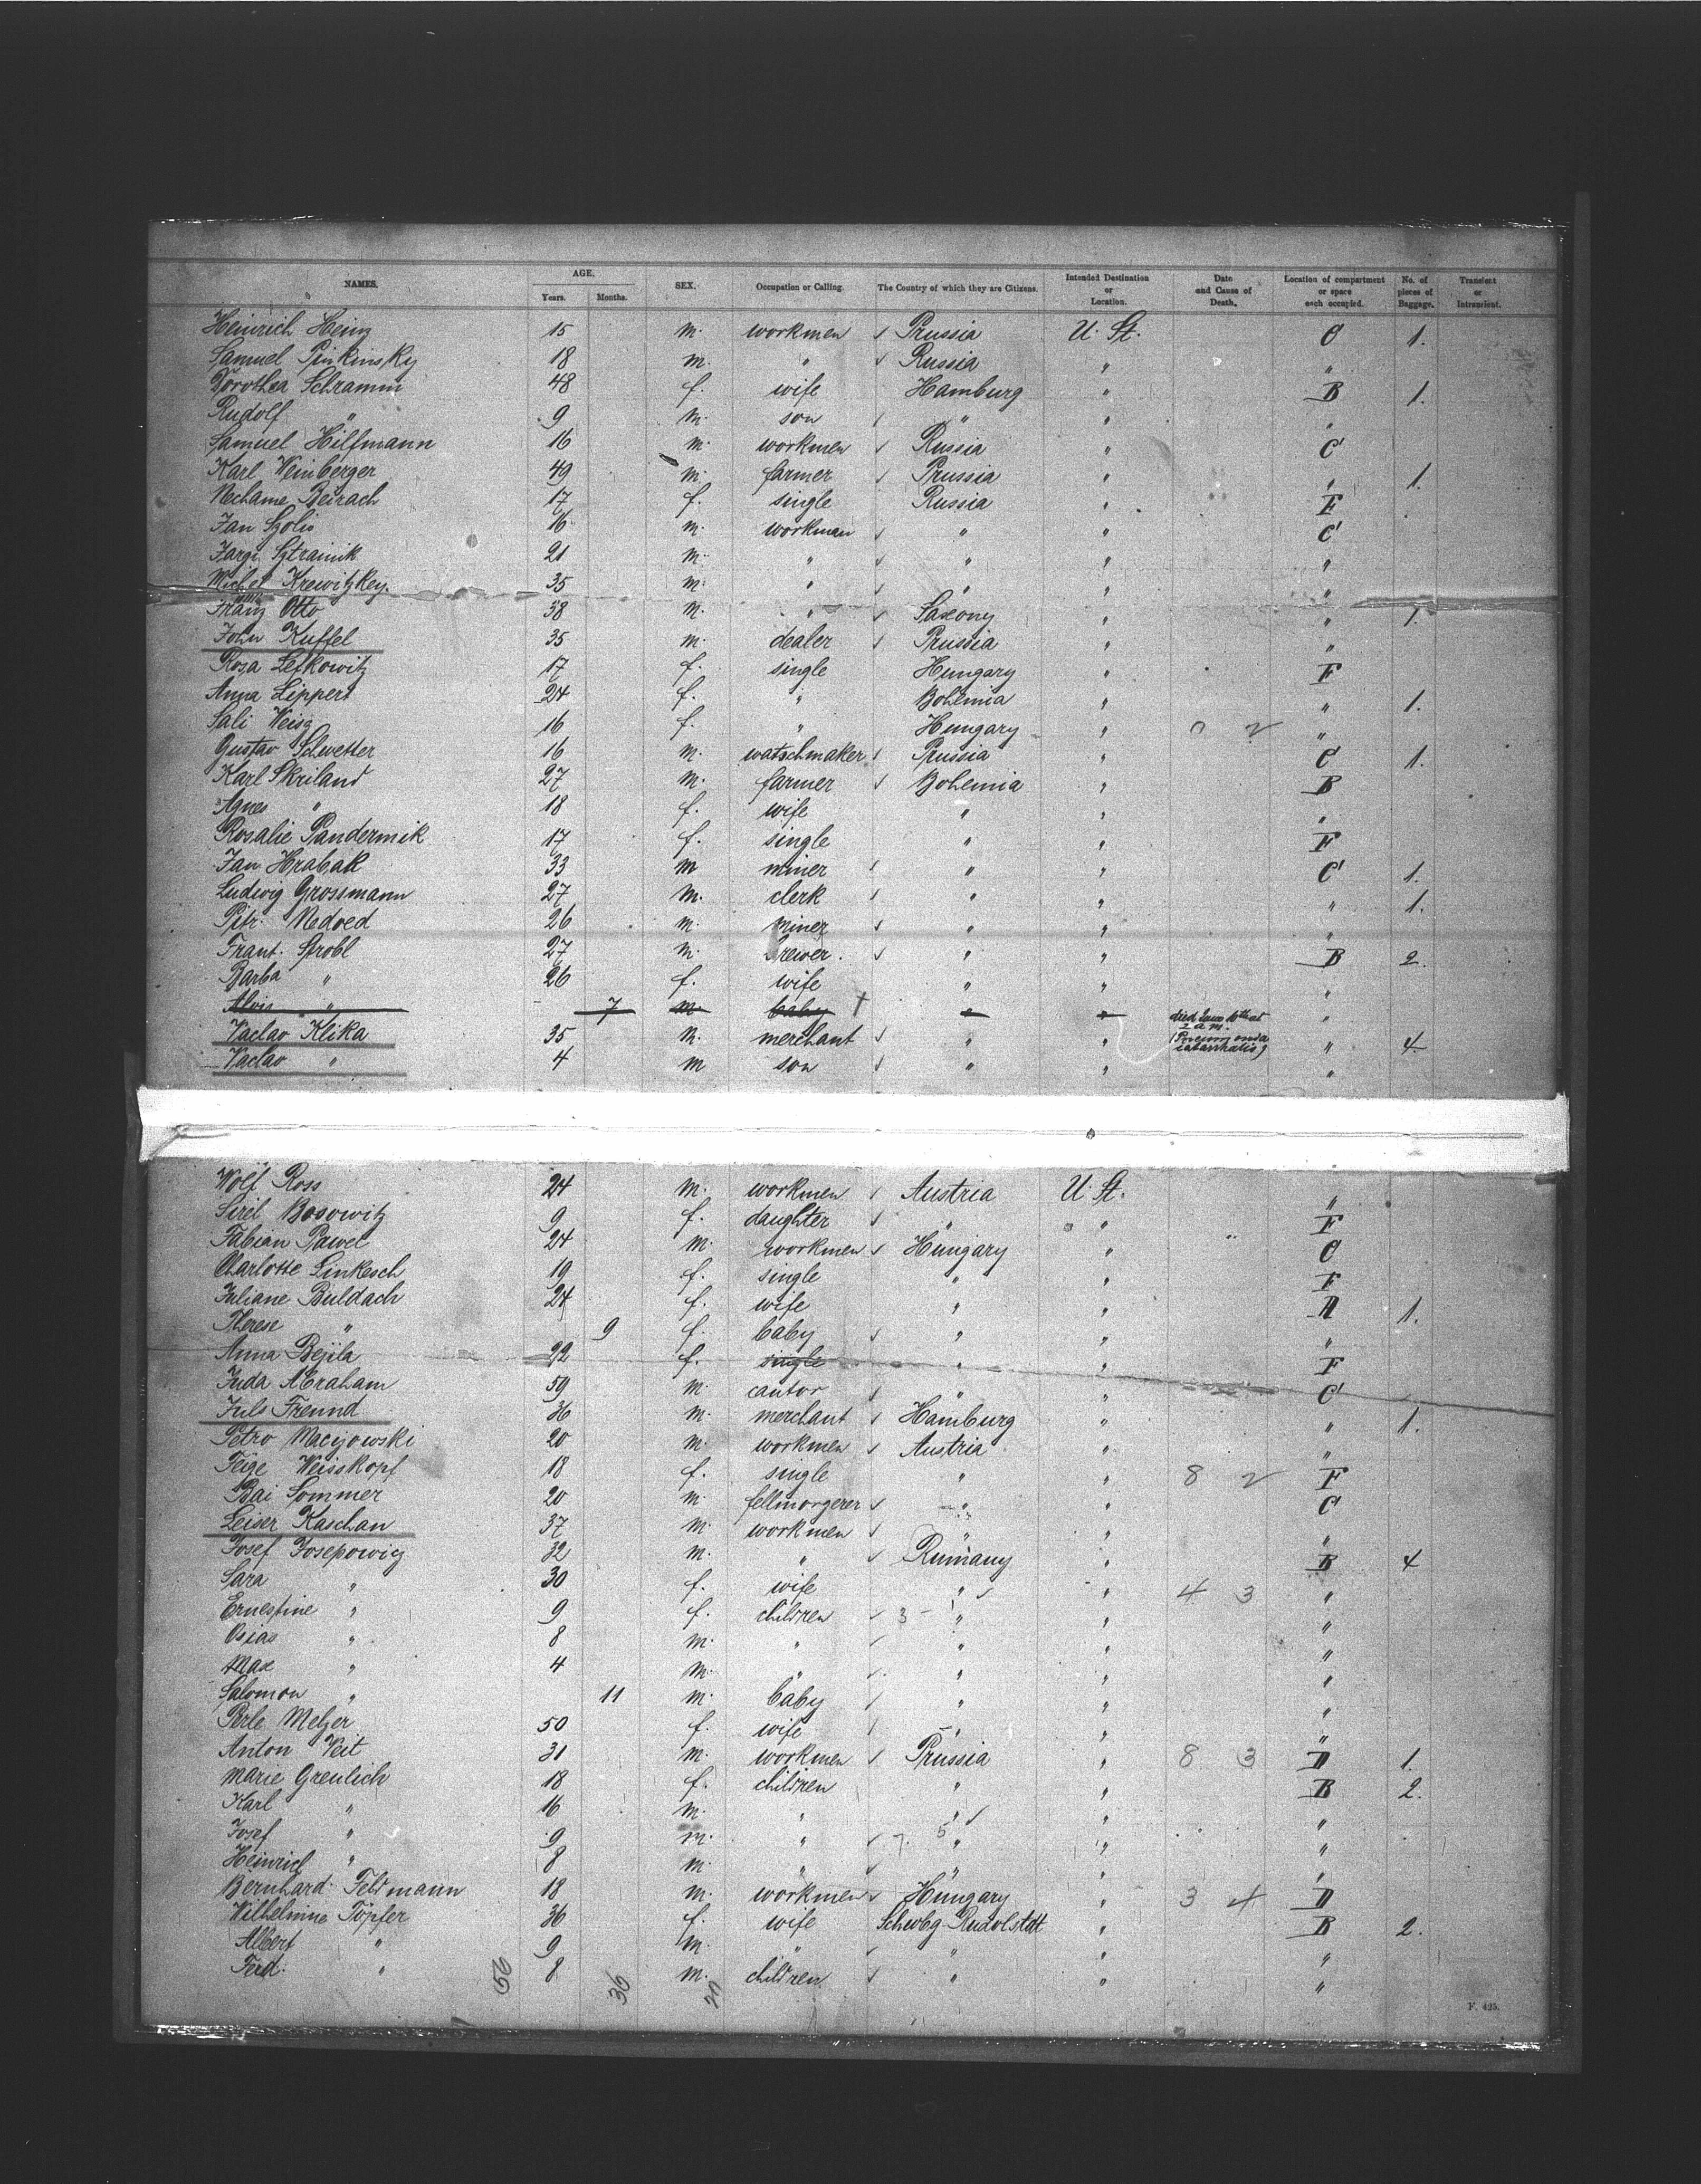 NAMES. AGE. Years. Months. SEX. Occupation or Calling. The Country of which they are Citizens. Intended Destination or Location. Date and Cause of Death. Location of compartment or space each occupied. No. of pieces of Baggage. Transient or Intransient.
Heinrich Heinz 15 m. workmen Prussia U. St. C 1.
Samuel Pinkinsky 18 m. " Russia " "
Dorothea Schramm 48 f. wife Hamburg " B 1.
Rudolf " 9 m. son " " "
Samuel Hilfmann 16 m. workmen Russia " C
Karl Weinberger 49 m. farmer Prussia " " 1.
Nechame Beirach 17 f. single Russia " F
Jan Szolis 16 m. workman " " C
Sztrainik 21 m. " " " "
Michel Krewitzkey. 35 m. " " " "
Franz Otto 38 m. " Saxony " " 1.
John Kuffel 35 m. dealer Prussia " "
Rosa Lefkowitz 17 f. single Hungary " F
Anna Lippert 24 f. " Bohemia " " 1.
Sali Weisz 16 f. " Hungary " "
Gustav Schwetter 16 m. watschmaker Prussia " C 1.
Karl Skriland 27 m. farmer Bohemia " B
Agnes " 18 f. wife " " "
Rosalie Pandermik 17 f. single " " F
Jan Hrabak 33 m miner " " C 1.
Ludwig Grossmann 27 m. clerk " " " 1.
Petr. Nedved 26 m. miner " " "
Frant. Strobl 27 m. brewer. " " B 2.
Barba " 26 f. wife " " "
Alois " 7 m baby † " " died June 10th at 2 a m. "
Vaclav Klika 35 m. merchant " " (Pneumonia catarrhalis) " 4.
Vaclav " 4 m son " " "
Wolf Ross 24 m. workmen Austria U. St. "
Sirel Bosowitz 9 f. daughter " " F
Fabian Pawel 24 m. workmen Hungary " " C
Charlotte Linkesch 19 f. single " " F
Juliane Buldach 24 f. wife " " H 1.
Therese " 9 f. baby " " "
Anna Bejila 22 f. single " " F
Juda Abraham 59 m. cantor " " C
Juls Freund 36 m. merchant Hamburg " " 1.
Petro Macyowski 20 m. workmen Austria " "
Feige Weisskopf 18 f. single " " 8 2 F
Bai Sommer 20 m. fellmorgerer " " C
Leiser Kaschan 37 m. workmen " " "
Josef Josepowicz 32 m. " Rumany " B 4
Sara " 30 f. wife " " 4 3 "
Ernestine " 9 f. children 3 - 1 " " "
Osias " 8 m. " " " "
Max " 4 m. " " " "
Salomon " 11 m. baby " " "
Perle Melzer 50 f. wife " " "
Anton Veit 31 m. workmen Prussia " 8 3 D 1.
Marie Greulich 18 f. children " " B 2.
Karl " 16 m. " " " "
Josef " 9 m. " 7. 5 " " "
Heinrich " 8 m. " " " "
Bernhard Feldmann 18 m. workmen Hungary " 3 4 D
Wilhelmine Töpfer 36 f. wife Schwbg-Rudolstdt " B 2.
Albert " 9 m. " " " "
Ferd. " 8 m. children " " "
56 36 20
F. 425.